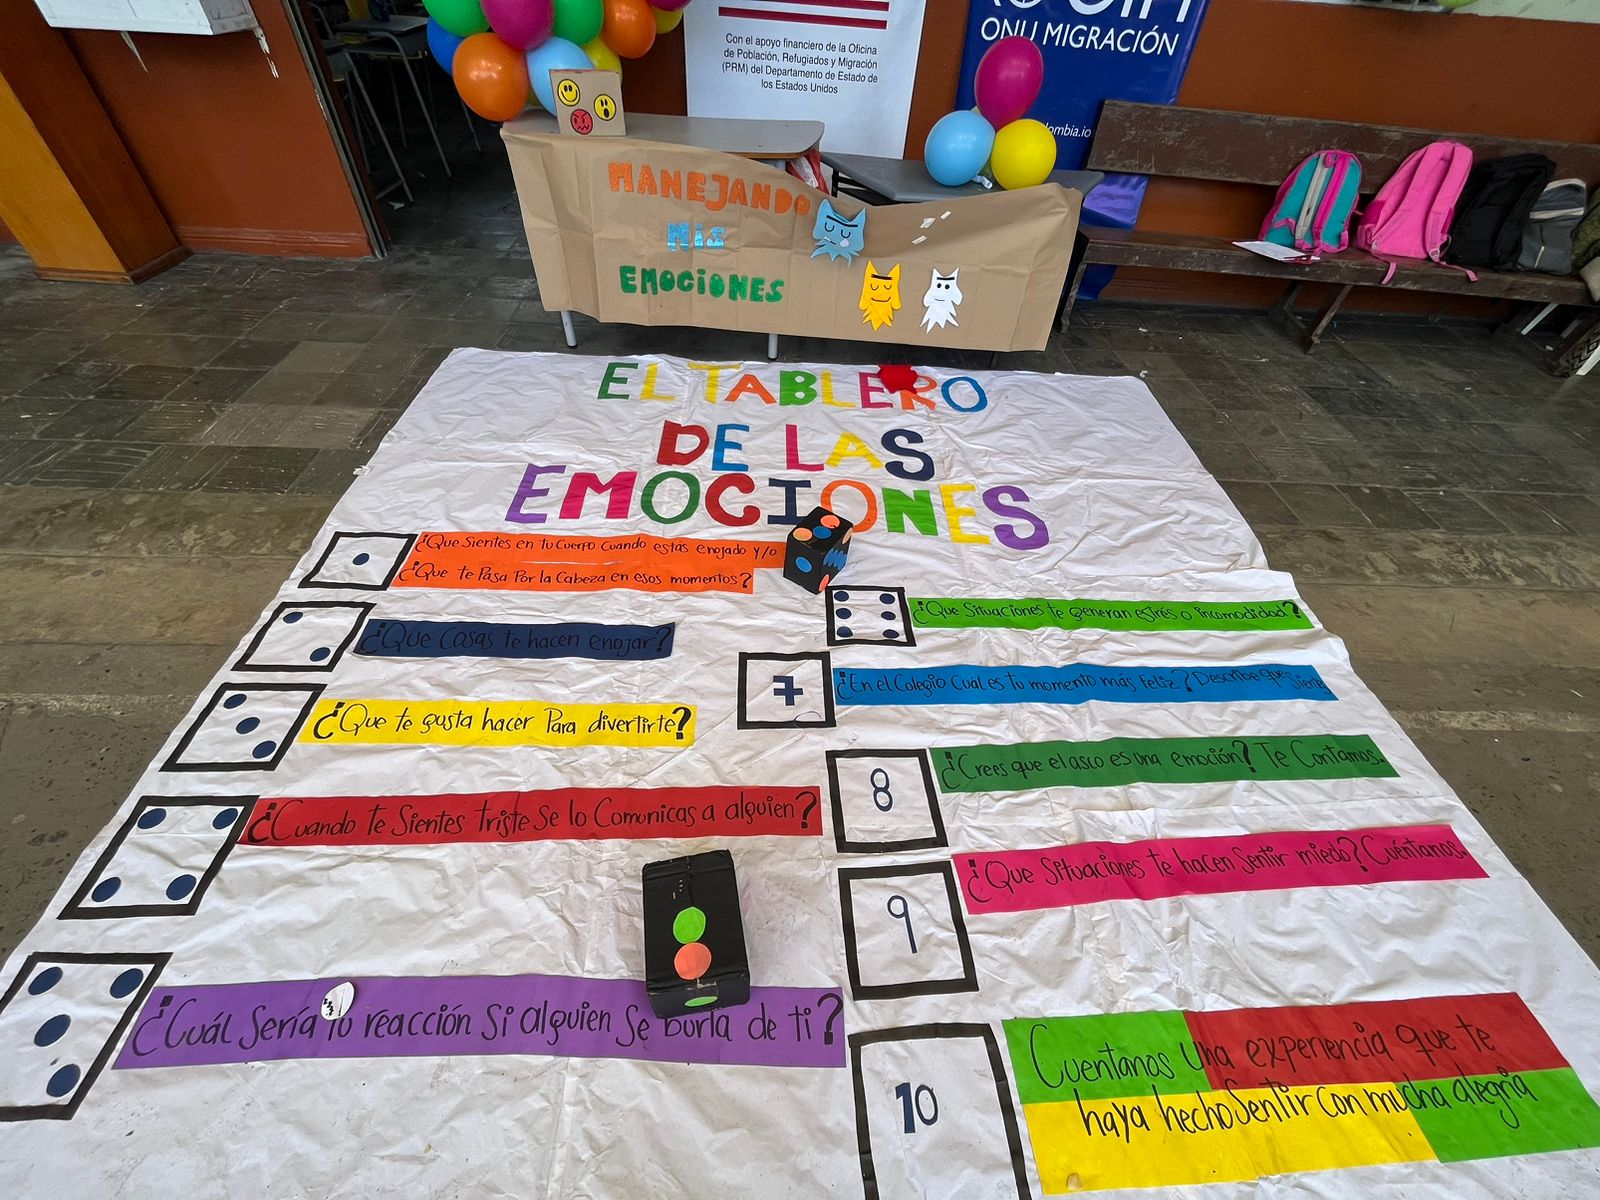 Con el apoyo financiero de la Oficina
de Población, Refugiados y Migración
(PRM) del Departamento de Estado de
los Estados Unidos
ONU MIGRACIÓN
MANEJANDO
MIS
EMOCIONES
EL TABLERO
DE LAS
EMOCIONES
¿Que Sientes en tu Cuerpo Cuando estas enojado y/o
¿Que te Pasa Por la Cabeza en esos momentos?
¿Que Cosas te hacen enojar?
¿Que te gusta hacer Para divertirte?
¿Cuando te Sientes triste Se lo Comunicas a alguien?
¿Cuál Sería tu reacción Si alguien Se burla de ti?
¿Que Situaciones te generan estrés o incomodidad?
7
¿En el Colegio Cual es tu momento más feliz? Describe que Sientes
8
¿Crees que el asco es una emoción? Te Contamos.
9
¿Que Situaciones te hacen Sentir miedo? Cuéntanos.
10
Cuentanos una experiencia que te
haya hecho Sentir Con mucha alegria